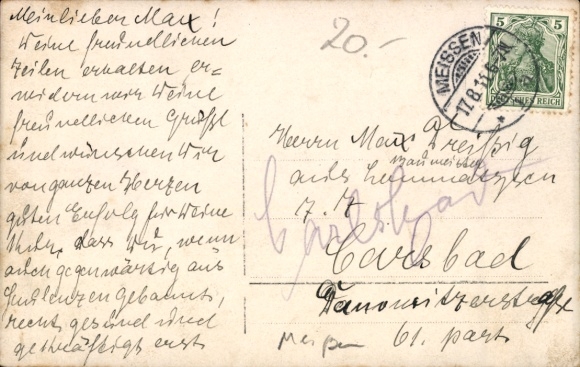 Mein lieber Max!
Deine freundlichen
Zeilen erhalten er-
widern wir Deine
freundlichen Grüße
und wünschen Dir
von ganzen Herzen
guten Erfolg für Deine
Kur, dass Du, wenn
auch gegenwärtig aus
recht gesund und
gekräftigt erst
20.-
MEISSEN
17.8.15
5 5
DEUTSCHES REICH
Herrn Max
Baumeister
aus
z. Z.
Carlsbad
Carlsbad
61. part